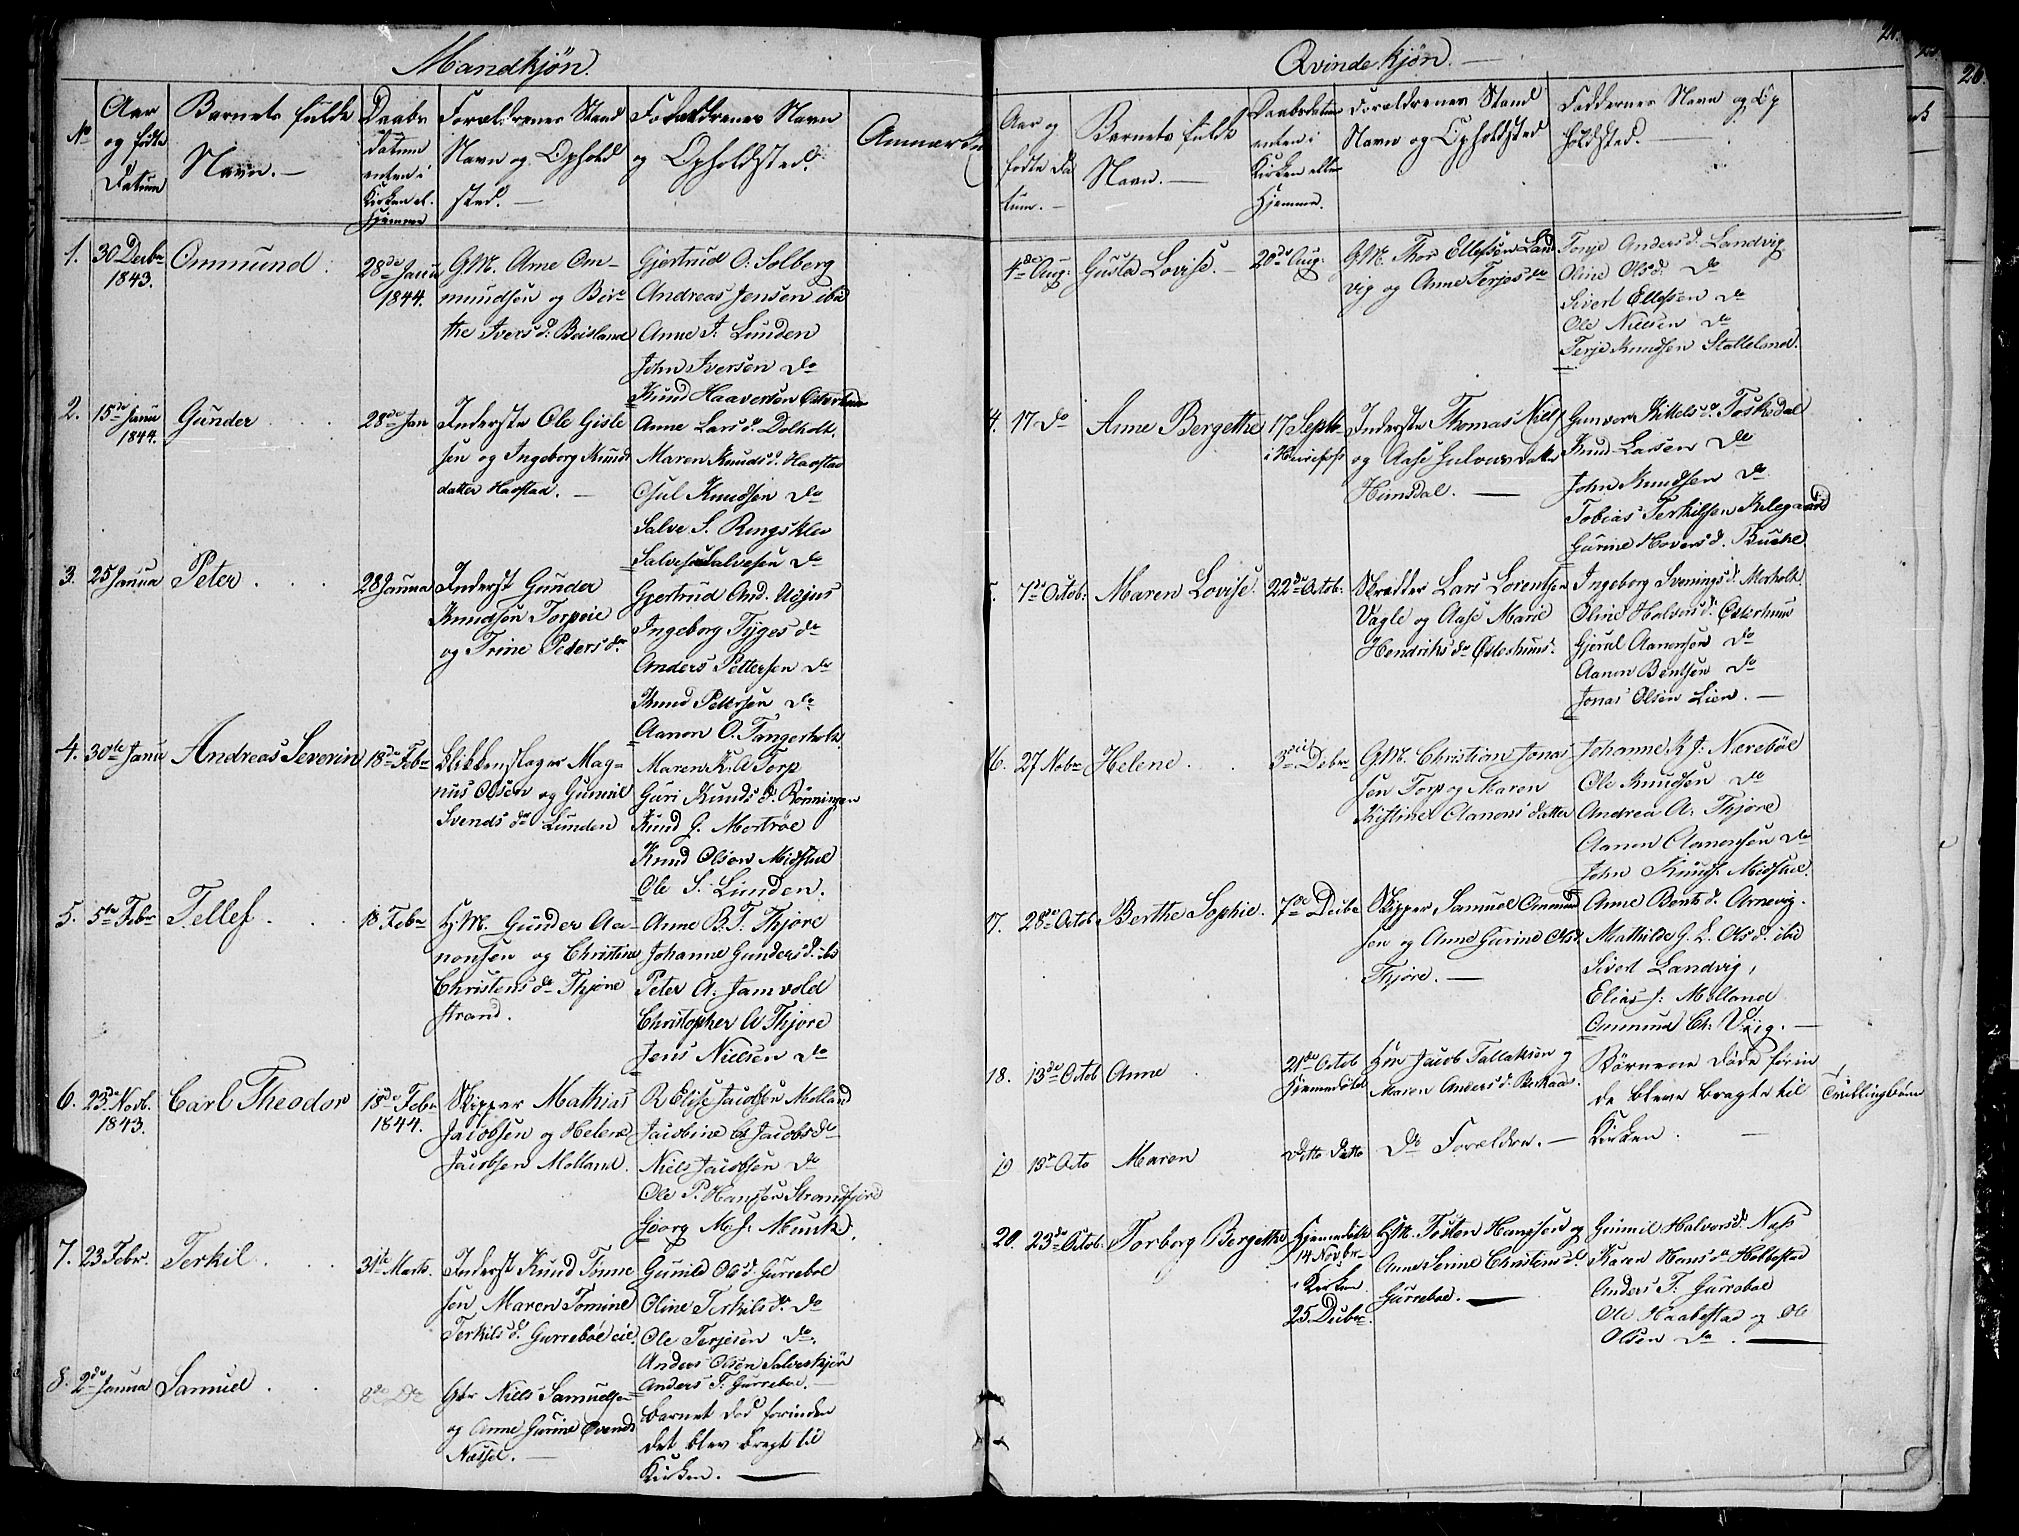 Mandkjön.
No
Aar og födte Datum
Barnets fulde Navn. —
Daabs datum enten i Kirken el. Hjemme
Forældrenes Stand Navn og Ophold sted. —
Faddrenes Navn og Opholdsted.
Anmærk
1. 30 Decbr 1843.
Ommund.
28de Janu 1844.
G.M. Arne Om-
mundsen og Ber-
the Ivers d:
Gjertrud O: Solberg
Andreas Jensen ibd
Anne J. Lunden
John Iversen do
Knud Haaversen Osterhuus
2. 15de Janu 1844.
Gunder
28de Jan
Inderste Ole Gisle
sen og Ingeborg Knuds
datter Havstad. —
Anne Lars d. Dolholt.
Maren Knuds d. Havstad
Knudsen do
Salve S. Ringsklev
Salvesen do
3. 25 Janua
Peter
28 Janua
Inderst Gunder
Knudsen Torpeie
og Trine Peders dr
Gjertrud And.
Ingeborg Tyges do
Anders Pettersen do
Knud Pettersen do
Aanon O. Tangerholt
4. 30te Janu
Andreas Severin
18de Febr
Blikkenslager Mag-
nus Olsen og Gunnil
Svends dr Lunden
Maren K. A Torp
Guri Knuds d. Rönningen
Knud G. Mortröe
Knud Olsen Midstul
Ole S. Lunden.
5. 5te Febr
Tellef
18 Febr
G.M. Gunder Aa-
nonsen og Christine
Christens dr Thjöre
strand.
Anne B. T. Thjore
Johanne Gunders d. ibd
Peter A. Jamvold
Christopher A Thjore
Jens Nielsen do
6. 23de Novb. 1843.
Carl Theodor
18de Febr 1844.
Skipper Mathias
Jacobsen og Helene
Jacobsen Molland.
R. Elise Jacobsen Molland
Jacobine Jacobs do
Niels Jacobsen do
Ole P. Hansen Strandfjore
Georg M. J. Munk.
7. 23 Febr.
Terkil
31te Marts.
Inderst Knud Tonne
sen, Maren Tomine
Terkils d. Gurreböe eie.
Gunild Ols d. Gurreboe
Oline Terkils dr do
Ole Terjesen do.
Anders Olsen Salveskjær
Anders T. Gurreboe. —
8. 2de Janua
Samuel
8de do
Gbr Niels Samuelsen
og Anne Gurine Svends
Næssel. —
Barnet død forinden
det blev bragt til
Kirken. —
Qvindekjön. —
Aar og födte Da tum. —
Barnets fulde Navn. —
Daabsdatum enten i Kirken eller Hjemme.
Forældrenes Stand Navn og Opholdsted
Faddernes Navn og Op holdsted. —
4de Aug:
Gusta Lovise. —
20de Aug:
G.M. Thor Ellefsen Land
vig og Anne Terjes dr
Tonje Anders d. Landvig
Oline Ols d. do
Sivert Ellefsen do
Ole Nielsen do
Terje Knudsen Stalleland.
4. 17 do
Anne Bergethe
17 Septb
Inderste Thomas Niels
og Aase Gulovs datter
Hemsdal. —
Gunvor Kittels d. Foskedal
Knud Larsen do
John Knudsen do
Tobias Terkilsen Kilegaard
Gurine Hovers d. Buehe
5. 7de Octob:
Maren Lovise.
22de Octob:
Skrædder Lars Lorentsen
Vagle og Aase Marie
Hendriks dr Östeshuus.
Ingeborg Svenings d. Morholt
Oline Halvors d. Osterhuus
Gjerul Aanonsen do
Aanon Bentsen do
Jonas Olsen Lien. —
16. 27 Nobr
Helene
3die Debr
G.M. Christian Jonas
sen Torp og Maren
Kistine Aanons datter
Johanne K J. Næreböe
Ole Knudsen do
Andrea A: Thjöre
Aanon Aanonsen do
John Knuds. Midstue.
17. 28de Octob
Berthe Sophie.
7de Decbr
Skipper Samuel Ommund
sen og Anne Gurine Ols d.
Thjöre. —
Anne Bents d. Arnevig.
Mathilde G. L. Ols d. ibd
Sivert Landvig,
Elias J: Molland
Ommund Ch: Viig. —
18. 13de Octob
Anne
21de Octob
Hjemmedöbt
Jacob Tallaksen og
Maren Anders d.
Börnene döde forin
de bleve bragte til
Kirken. —
Tvillingbörn
19 13de Octo
Maren
ditto ditto
do Forældre. —
20. 23de Octob.
Torborg Bergethe
Hjemmedöbt
14 Novbr
i Kirken
25 Decbr.
G.M. Tosten Hansen og
Anne Serine Christens d.
Gurreboe. —
Gunnil Halvors d. Næs
Karen Hans dr Hobbestad
Anders T. Gurreboe
Ole Haabestad og Ole
Olsen do. —
26.